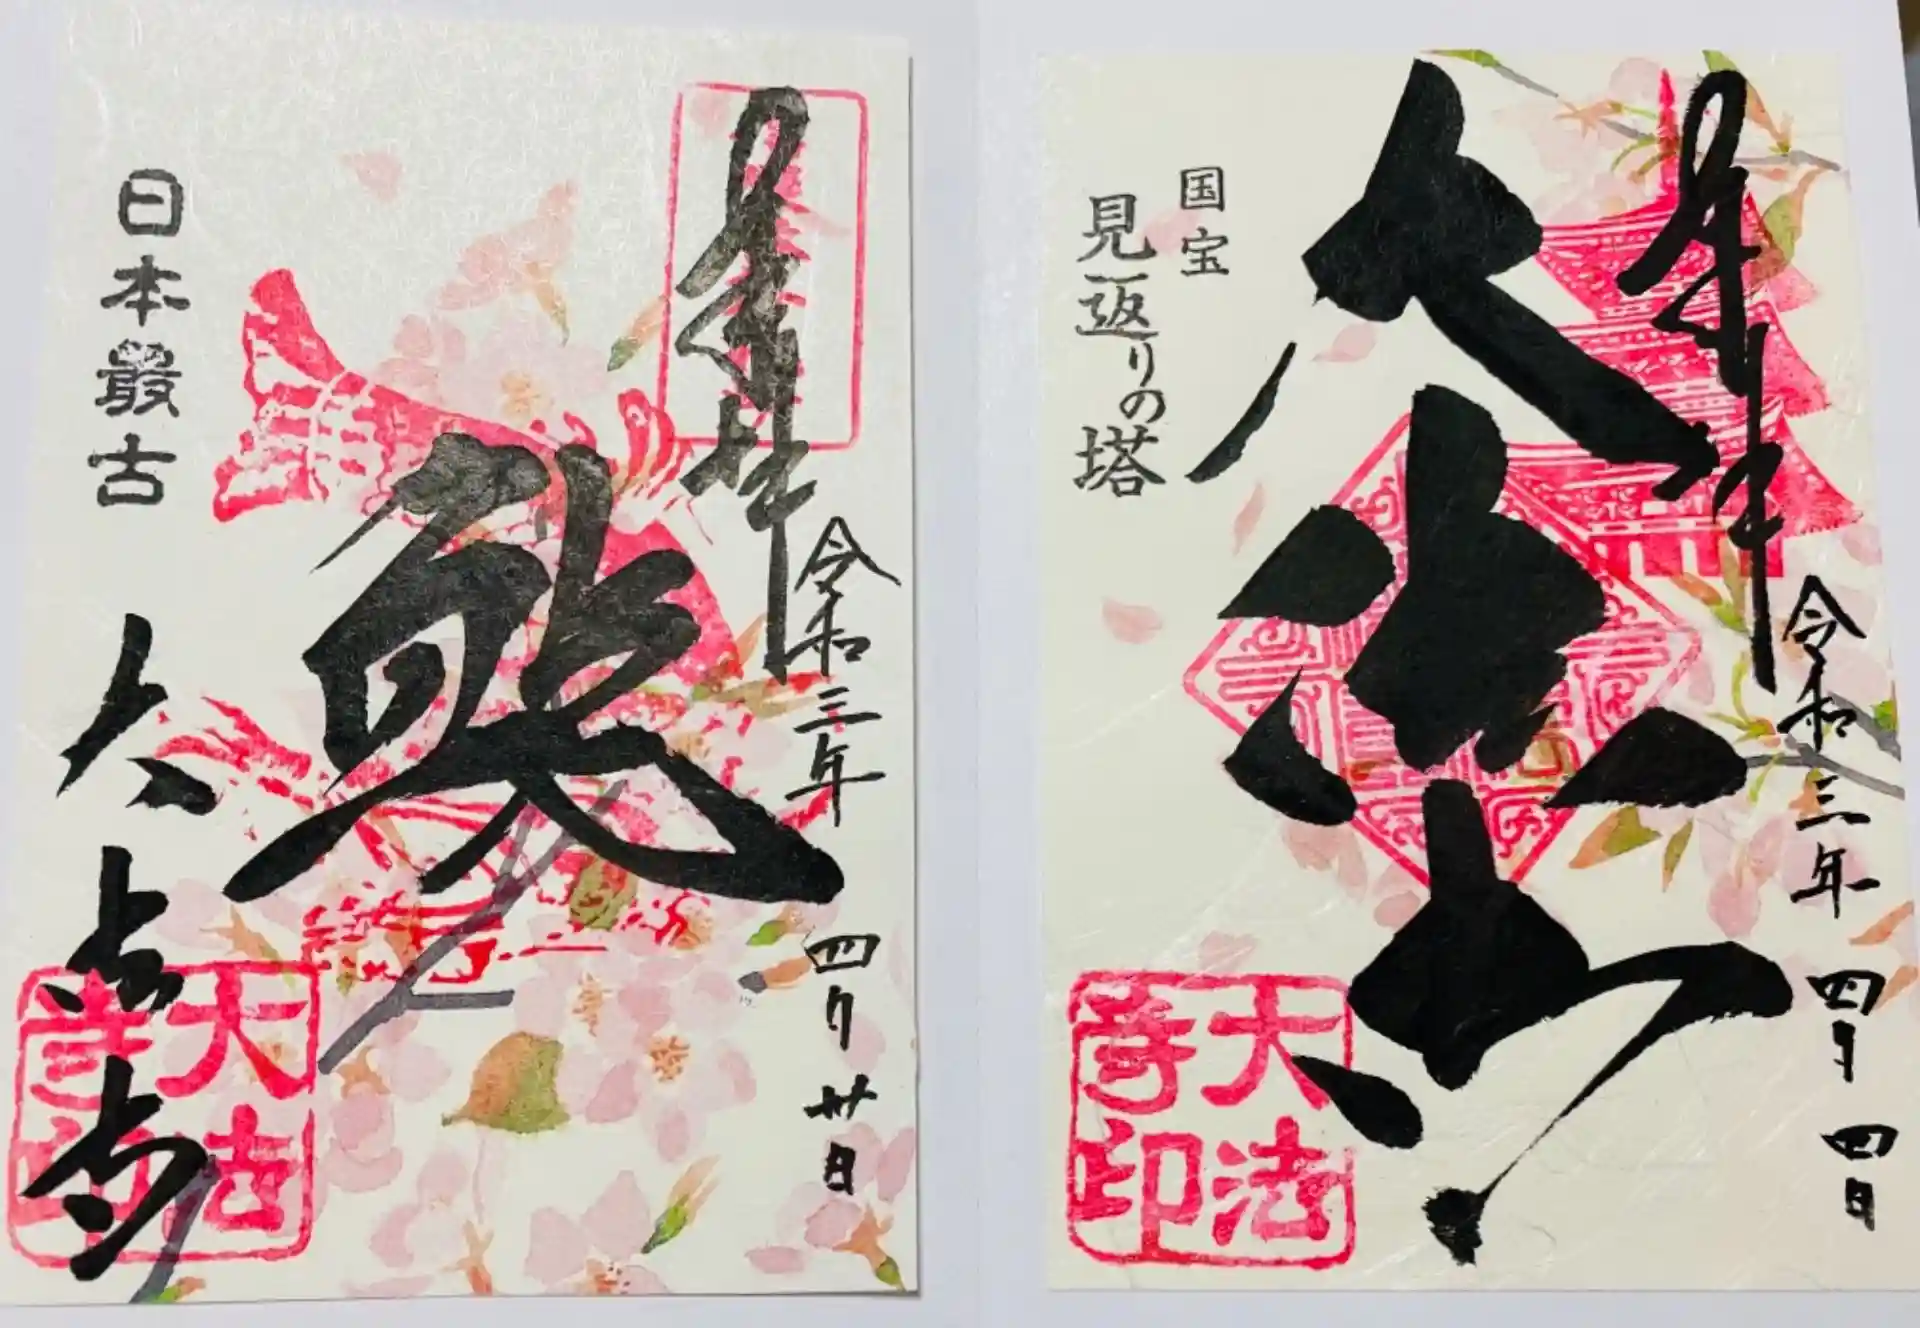 奉拝
令和三年四月廿日
鯱
日本最古
大法寺
大法
寺印
奉拝
令和三年四月四日
大法寺
国宝
見返りの塔
大法
寺印